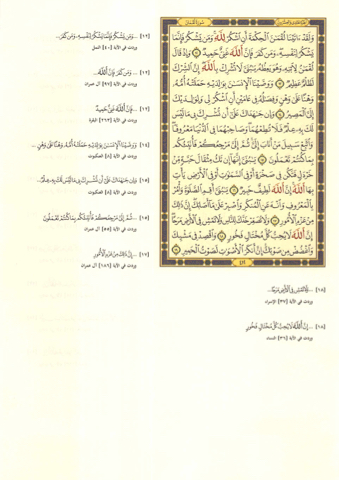 سورة لقمان
وَلَقَدْ ءَاتَيْنَا لُقْمَٰنَ ٱلْحِكْمَةَ أَنِ ٱشْكُرْ لِلَّهِ وَمَن يَشْكُرْ فَإِنَّمَا
يَشْكُرُ لِنَفْسِهِۦ وَمَن كَفَرَ فَإِنَّ ٱللَّهَ غَنِىٌّ حَمِيدٌ ١٢ وَإِذْ قَالَ
لُقْمَٰنُ لِٱبْنِهِۦ وَهُوَ يَعِظُهُۥ يَٰبُنَىَّ لَا تُشْرِكْ بِٱللَّهِ إِنَّ ٱلشِّرْكَ
لَظُلْمٌ عَظِيمٌ ١٣ وَوَصَّيْنَا ٱلْإِنسَٰنَ بِوَٰلِدَيْهِ حَمَلَتْهُ أُمُّهُۥ
وَهْنًا عَلَىٰ وَهْنٍ وَفِصَٰلُهُۥ فِى عَامَيْنِ أَنِ ٱشْكُرْ لِى وَلِوَٰلِدَيْكَ
إِلَىَّ ٱلْمَصِيرُ ١٤ وَإِن جَٰهَدَاكَ عَلَىٰٓ أَن تُشْرِكَ بِى مَا لَيْسَ
لَكَ بِهِۦ عِلْمٌ فَلَا تُطِعْهُمَا وَصَاحِبْهُمَا فِى ٱلدُّنْيَا مَعْرُوفًا
وَٱتَّبِعْ سَبِيلَ مَنْ أَنَابَ إِلَىَّ ثُمَّ إِلَىَّ مَرْجِعُكُمْ فَأُنَبِّئُكُم
بِمَا كُنتُمْ تَعْمَلُونَ ١٥ يَٰبُنَىَّ إِنَّهَآ إِن تَكُ مِثْقَالَ حَبَّةٍ مِّنْ
خَرْدَلٍ فَتَكُن فِى صَخْرَةٍ أَوْ فِى ٱلسَّمَٰوَٰتِ أَوْ فِى ٱلْأَرْضِ يَأْتِ
بِهَا ٱللَّهُ إِنَّ ٱللَّهَ لَطِيفٌ خَبِيرٌ ١٦ يَٰبُنَىَّ أَقِمِ ٱلصَّلَوٰةَ وَأْمُرْ
بِٱلْمَعْرُوفِ وَٱنْهَ عَنِ ٱلْمُنكَرِ وَٱصْبِرْ عَلَىٰ مَآ أَصَابَكَ إِنَّ ذَٰلِكَ
مِنْ عَزْمِ ٱلْأُمُورِ ١٧ وَلَا تُصَعِّرْ خَدَّكَ لِلنَّاسِ وَلَا تَمْشِ فِى ٱلْأَرْضِ مَرَحًا
إِنَّ ٱللَّهَ لَا يُحِبُّ كُلَّ مُخْتَالٍ فَخُورٍ ١٨ وَٱقْصِدْ فِى مَشْيِكَ
وَٱغْضُضْ مِن صَوْتِكَ إِنَّ أَنكَرَ ٱلْأَصْوَٰتِ لَصَوْتُ ٱلْحَمِيرِ ١٩
٤١٢
[١٢] ...وَمَن يَشْكُرْ فَإِنَّمَا يَشْكُرُ لِنَفْسِهِۦ وَمَن كَفَرَ...
وردت في الآية [٤٠] النمل
[١٢] ...وَمَن كَفَرَ فَإِنَّ ٱللَّهَ...
وردت في الآية [٩٧] آل عمران
[١٢] ...فَإِنَّ ٱللَّهَ غَنِىٌّ حَمِيدٌ
وردت في الآية [٢٦٧] البقرة
[١٤] وَوَصَّيْنَا ٱلْإِنسَٰنَ بِوَٰلِدَيْهِ حَمَلَتْهُ أُمُّهُۥ وَهْنًا عَلَىٰ وَهْنٍ...
وردت في الآية [٨] العنكبوت
[١٥] وَإِن جَٰهَدَاكَ عَلَىٰٓ أَن تُشْرِكَ بِى مَا لَيْسَ لَكَ بِهِۦ عِلْمٌ...
وردت في الآية [٨] العنكبوت
[١٥] ...ثُمَّ إِلَىَّ مَرْجِعُكُمْ فَأُنَبِّئُكُم بِمَا كُنتُمْ تَعْمَلُونَ
وردت في الآية [٥٥] آل عمران
[١٧] ...إِنَّ ذَٰلِكَ مِنْ عَزْمِ ٱلْأُمُورِ
وردت في الآية [١٨٦] آل عمران
[١٨] ...وَلَا تَمْشِ فِى ٱلْأَرْضِ مَرَحًا...
وردت في الآية [٣٧] الإسراء
[١٨] ...إِنَّ ٱللَّهَ لَا يُحِبُّ كُلَّ مُخْتَالٍ فَخُورٍ
وردت في الآية [٣٦] النساء